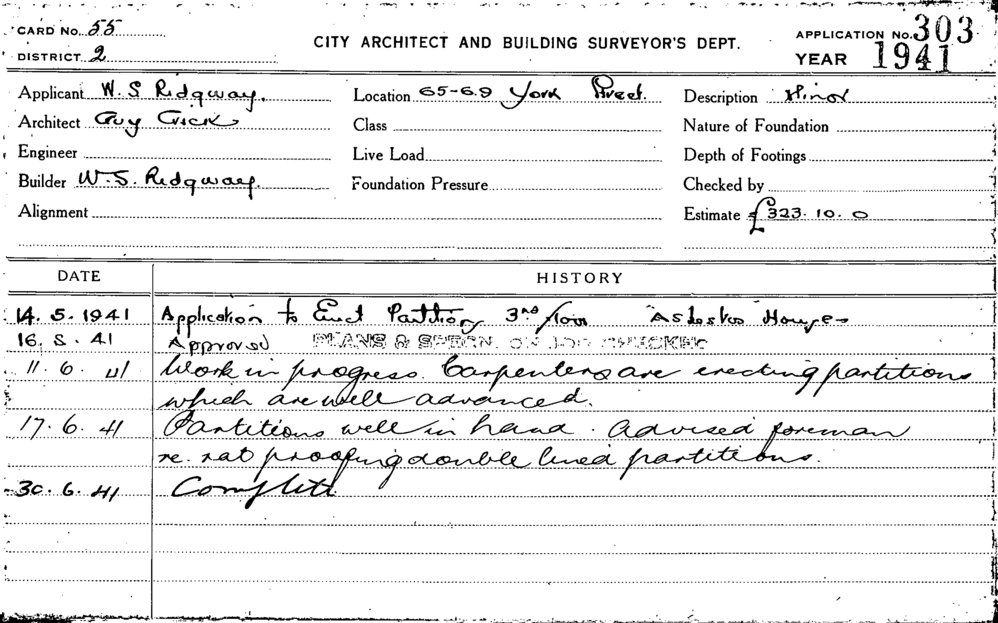 CARD No. 55
DISTRICT 2
CITY ARCHITECT AND BUILDING SURVEYOR'S DEPT.
APPLICATION No. 303
YEAR 1941
Applicant W. S Ridgway.
Location 65-69 York Street.
Description Minor
Architect Guy Crick
Class
Nature of Foundation
Engineer
Live Load
Depth of Footings
Builder W. S. Ridgway.
Foundation Pressure
Checked by
Alignment
Estimate £323. 10. 0
DATE
HISTORY
14. 5. 1941 Application to Erect Partition 3rd floor "Asbestos House"
16. 5. 41 Approved PLANS & SPECN. ON JOB CHECKED
11. 6. 41 Work in progress. Carpenters are erecting partitions
which are well advanced.
17. 6. 41 Partitions well in hand. Advised foreman
re. rat proofing double lined partitions.
30. 6. 41 Complete